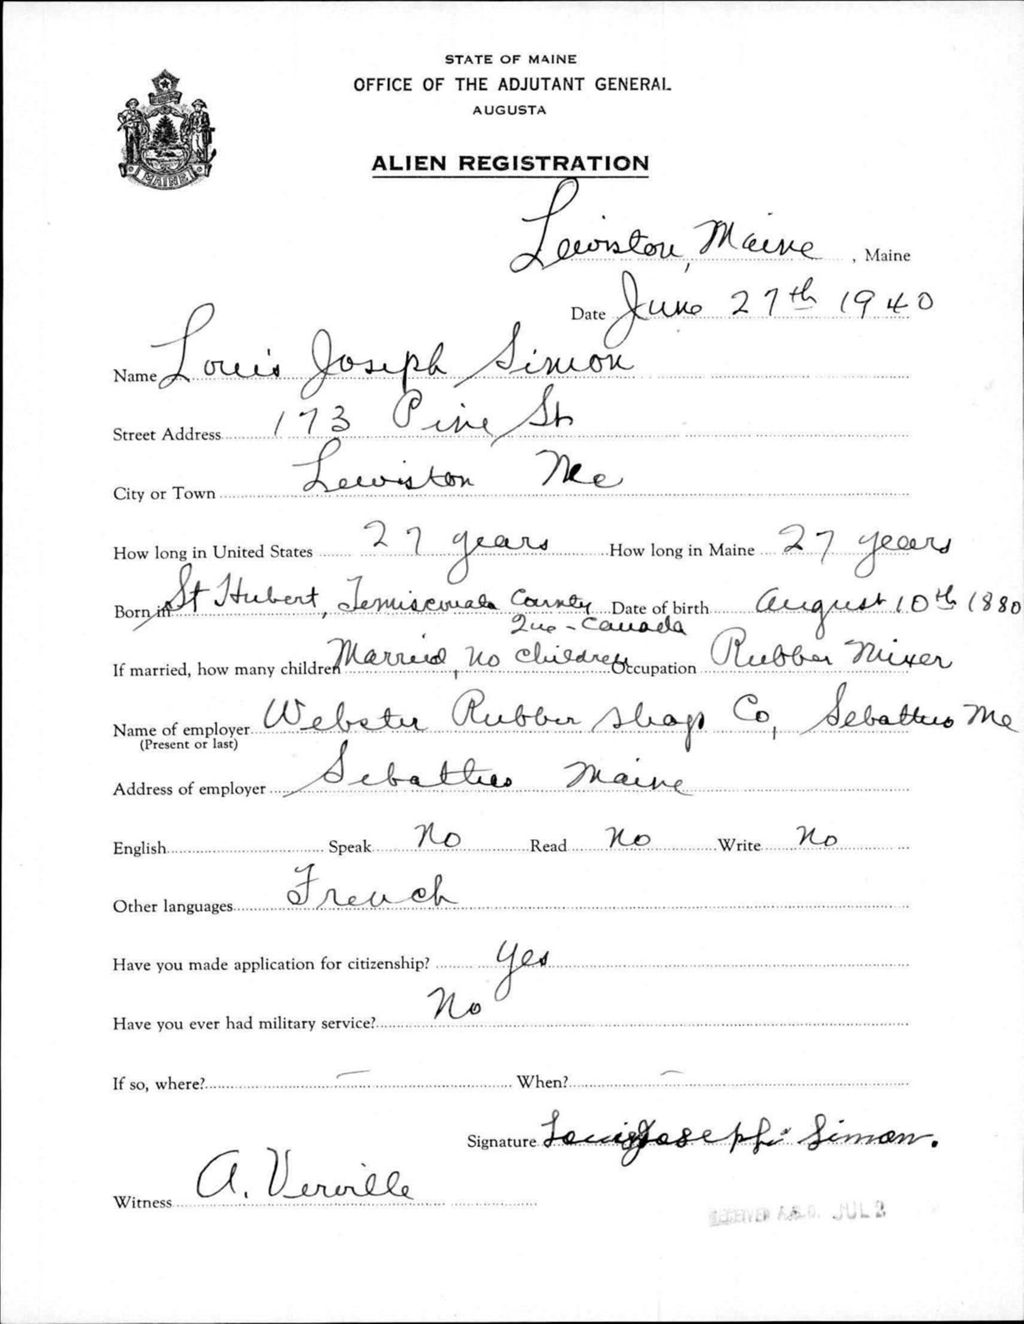 STATE OF MAINE
OFFICE OF THE ADJUTANT GENERAL
AUGUSTA
MAINE
ALIEN REGISTRATION
Lewiston, Maine, Maine
Date June 27th 1940
Name Louis Joseph Simon
Street Address 173 Pine St
City or Town Lewiston Me
How long in United States 27 years How long in Maine 27 years
Born in St Hubert, Temiscouata County Date of birth August 10th 1880
Que - Canada
If married, how many children Married, no children Occupation Rubber Mixer
Name of employer Webster Rubber shops Co, Sebattus Me
(Present or last)
Address of employer Sebattus Maine
English Speak No Read No Write No
Other languages French
Have you made application for citizenship? yes
Have you ever had military service? No
If so, where? — When? —
Signature Louis Joseph Simon.
Witness A. Verville
RECEIVED A.G.O. JUL 2